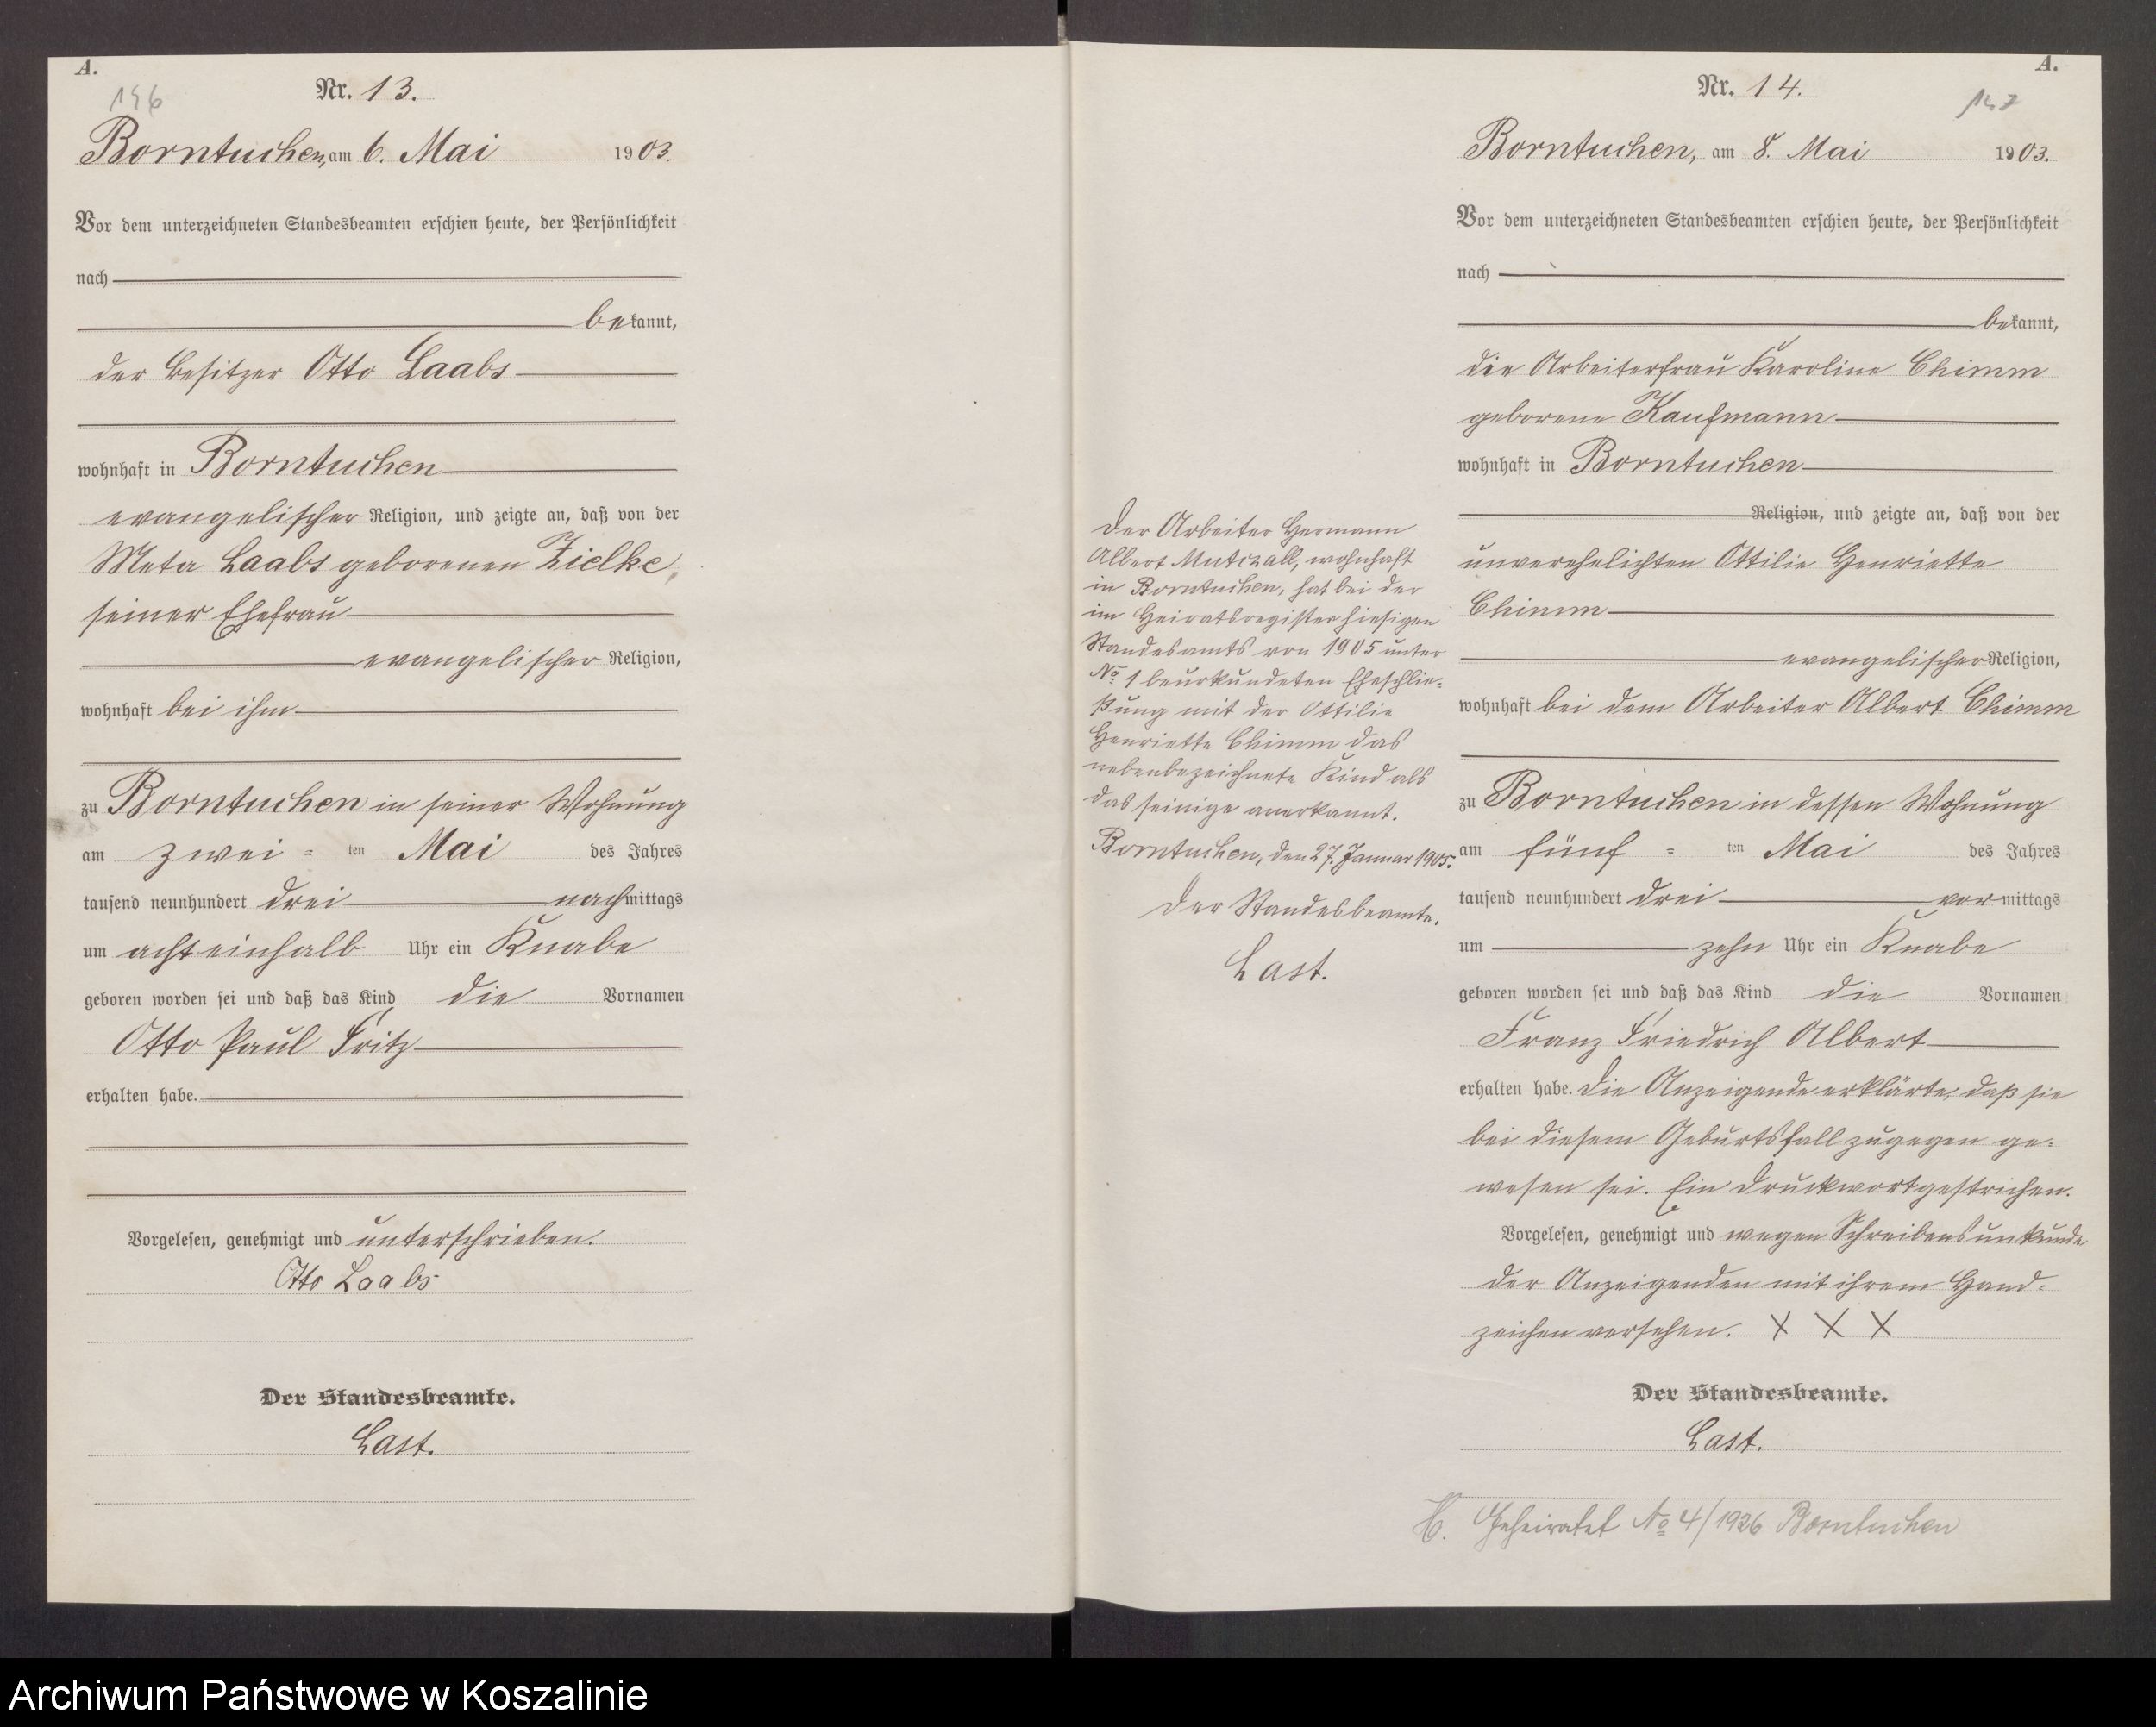 A.
146
Nr. 13.
Borntuchen, am 6. Mai 1903.
Vor dem unterzeichneten Standesbeamten erschien heute, der Persönlichkeit
nach
bekannt,
der Besitzer Otto Laabs
wohnhaft in Borntuchen
evangelischer Religion, und zeigte an, daß von der
Meta Laabs geborenen Zielke,
seiner Ehefrau
evangelischer Religion,
wohnhaft bei ihm
zu Borntuchen in seiner Wohnung
am zwei = ten Mai des Jahres
tausend neunhundert drei nachmittags
um achteinhalb Uhr ein Knabe
geboren worden sei und daß das Kind die Vornamen
Otto Paul Fritz
erhalten habe.
Vorgelesen, genehmigt und unterschrieben.
Otto Laabs
Der Standesbeamte.
Last.
A.
147
Nr. 14.
Borntuchen, am 8. Mai 1903.
Vor dem unterzeichneten Standesbeamten erschien heute, der Persönlichkeit
nach
bekannt,
die Arbeiterfrau Karoline Chimm
geborene Kaufmann
wohnhaft in Borntuchen
Religion, und zeigte an, daß von der
unverehelichten Ottilie Henriette
Chimm
evangelischer Religion,
wohnhaft bei dem Arbeiter Albert Chimm
zu Borntuchen in dessen Wohnung
am fünf = ten Mai des Jahres
tausend neunhundert drei vormittags
um zehn Uhr ein Knabe
geboren worden sei und daß das Kind die Vornamen
Franz Friedrich Albert
erhalten habe. Die Anzeigende erklärte, daß sie
bei diesem Geburtsfall zugegen ge=
wesen sei. Ein Druckwort gestrichen.
Vorgelesen, genehmigt und wegen Schreibensunkunde
der Anzeigenden mit ihrem Hand=
zeichen versehen. X X X
Der Standesbeamte.
Last.
H. Geheiratet No 4/1926 Borntuchen
Der Arbeiter Hermann
Albert Mutczall, wohnhaft
in Borntuchen, hat bei der
im Heiratsregister hiesigen
Standesamts von 1905 unter
No 1 beurkundeten Eheschlie=
ßung mit der Ottilie
Henriette Chimm das
nebenbezeichnete Kind als
das seinige anerkannt.
Borntuchen, den 27. Januar 1905.
Der Standesbeamte.
Last.
Archiwum Państwowe w Koszalinie